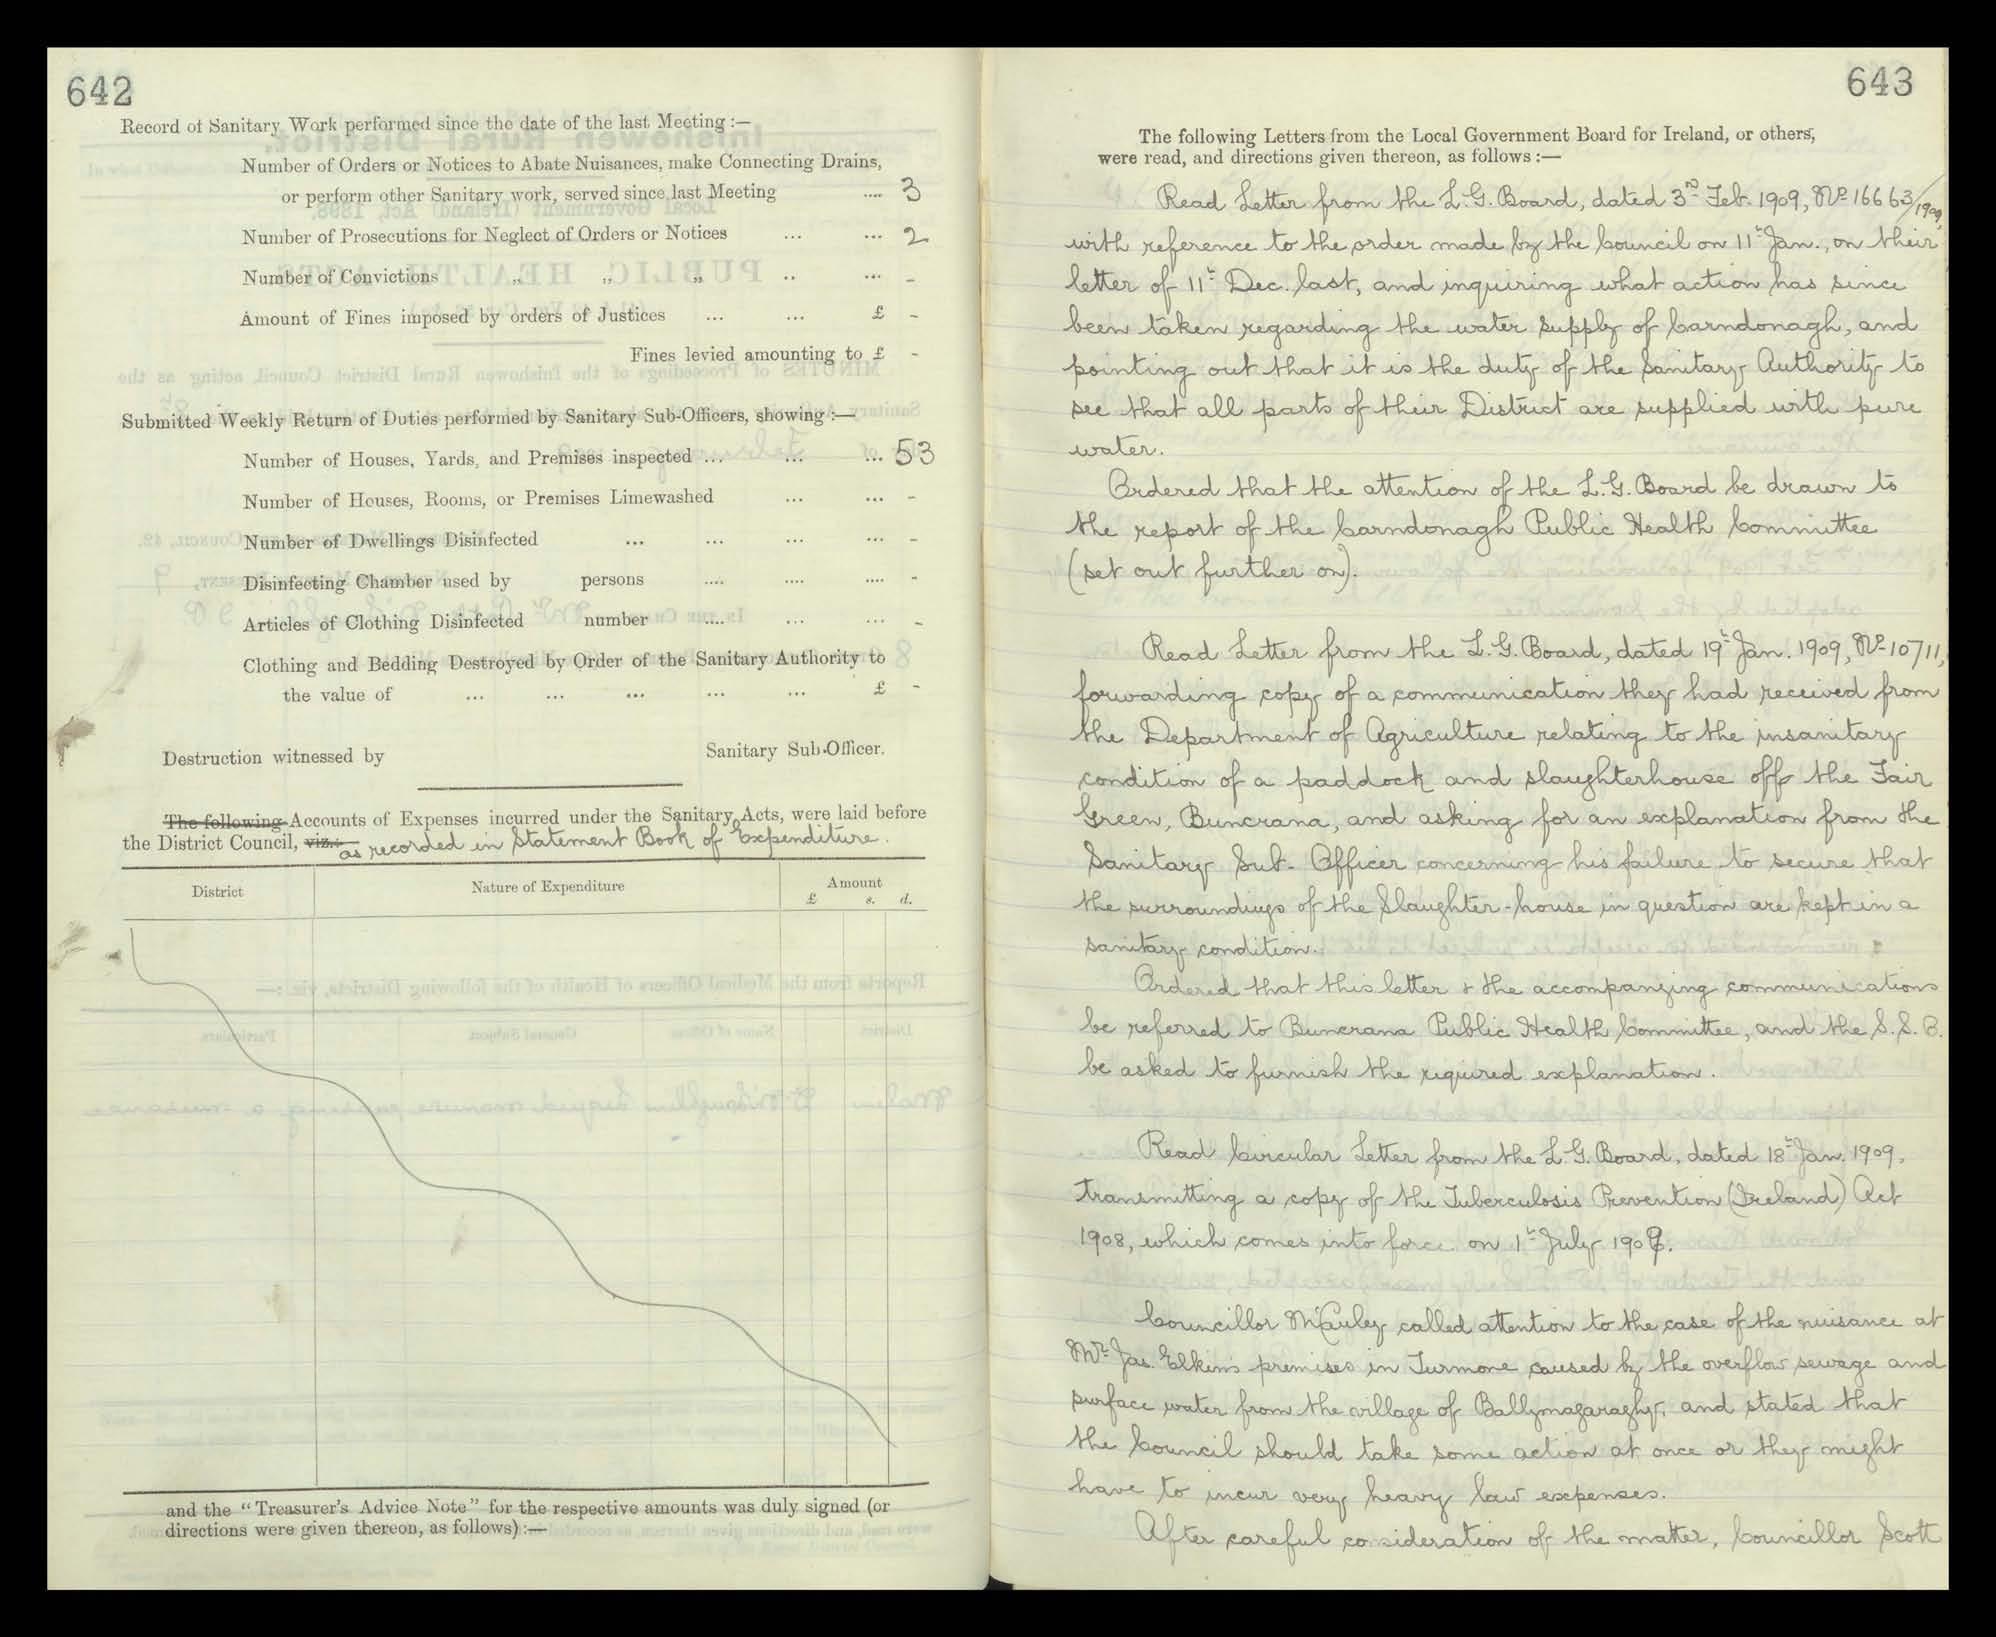 642
Record of Sanitary Work performed since the date of the last Meeting :—
Number of Orders or Notices to Abate Nuisances, make Connecting Drains,
or perform other Sanitary work, served since last Meeting .... 3
Number of Prosecutions for Neglect of Orders or Notices ... ... 2
Number of Convictions „ „ „ .. ... -
Amount of Fines imposed by orders of Justices ... ... £ -
Fines levied amounting to £ -
Submitted Weekly Return of Duties performed by Sanitary Sub-Officers, showing :—
Number of Houses, Yards, and Premises inspected ... ... ... 53
Number of Houses, Rooms, or Premises Limewashed ... ... -
Number of Dwellings Disinfected ... ... ... ... -
Disinfecting Chamber used by persons .... .... .... -
Articles of Clothing Disinfected number .... ... ... -
Clothing and Bedding Destroyed by Order of the Sanitary Authority to
the value of ... ... ... ... ... £ -
Destruction witnessed by Sanitary Sub-Officer.
The following Accounts of Expenses incurred under the Sanitary Acts, were laid before
the District Council, viz.:— as recorded in Statement Book of Expenditure.
District Nature of Expenditure Amount
£ s. d.
and the “Treasurer's Advice Note” for the respective amounts was duly signed (or
directions were given thereon, as follows) :—
643
The following Letters from the Local Government Board for Ireland, or others,
were read, and directions given thereon, as follows :—
Read Letter from the L.G. Board, dated 3rd Feb. 1909, No 16663/1909,
with reference to the order made by the Council on 11th Jan., on their
letter of 11th Dec. last, and inquiring what action has since
been taken regarding the water supply of Carndonagh, and
pointing out that it is the duty of the Sanitary Authority to
see that all parts of their District are supplied with pure
water.
Ordered that the attention of the L.G. Board be drawn to
the report of the Carndonagh Public Health Committee
(set out further on).
Read Letter from the L.G. Board, dated 19th Jan. 1909, No 10711,
forwarding copy of a communication they had received from
the Department of Agriculture relating to the insanitary
condition of a paddock and slaughterhouse off the Fair
Green, Buncrana, and asking for an explanation from the
Sanitary Sub-Officer concerning his failure to secure that
the surroundings of the Slaughter-house in question are kept in a
sanitary condition.
Ordered that this letter & the accompanying communications
be referred to Buncrana Public Health Committee, and the S.S.O.
be asked to furnish the required explanation.
Read Circular Letter from the L.G. Board, dated 18th Jan. 1909,
transmitting a copy of the Tuberculosis Prevention (Ireland) Act
1908, which comes into force on 1st July 1909.
Councillor McCauley called attention to the case of the nuisance at
Mr Jas. Elkin's premises in Turmone caused by the overflow sewage and
surface water from the village of Ballymagaraghy, and stated that
the Council should take some action at once or they might
have to incur very heavy law expenses.
After careful consideration of the matter, Councillor Scott